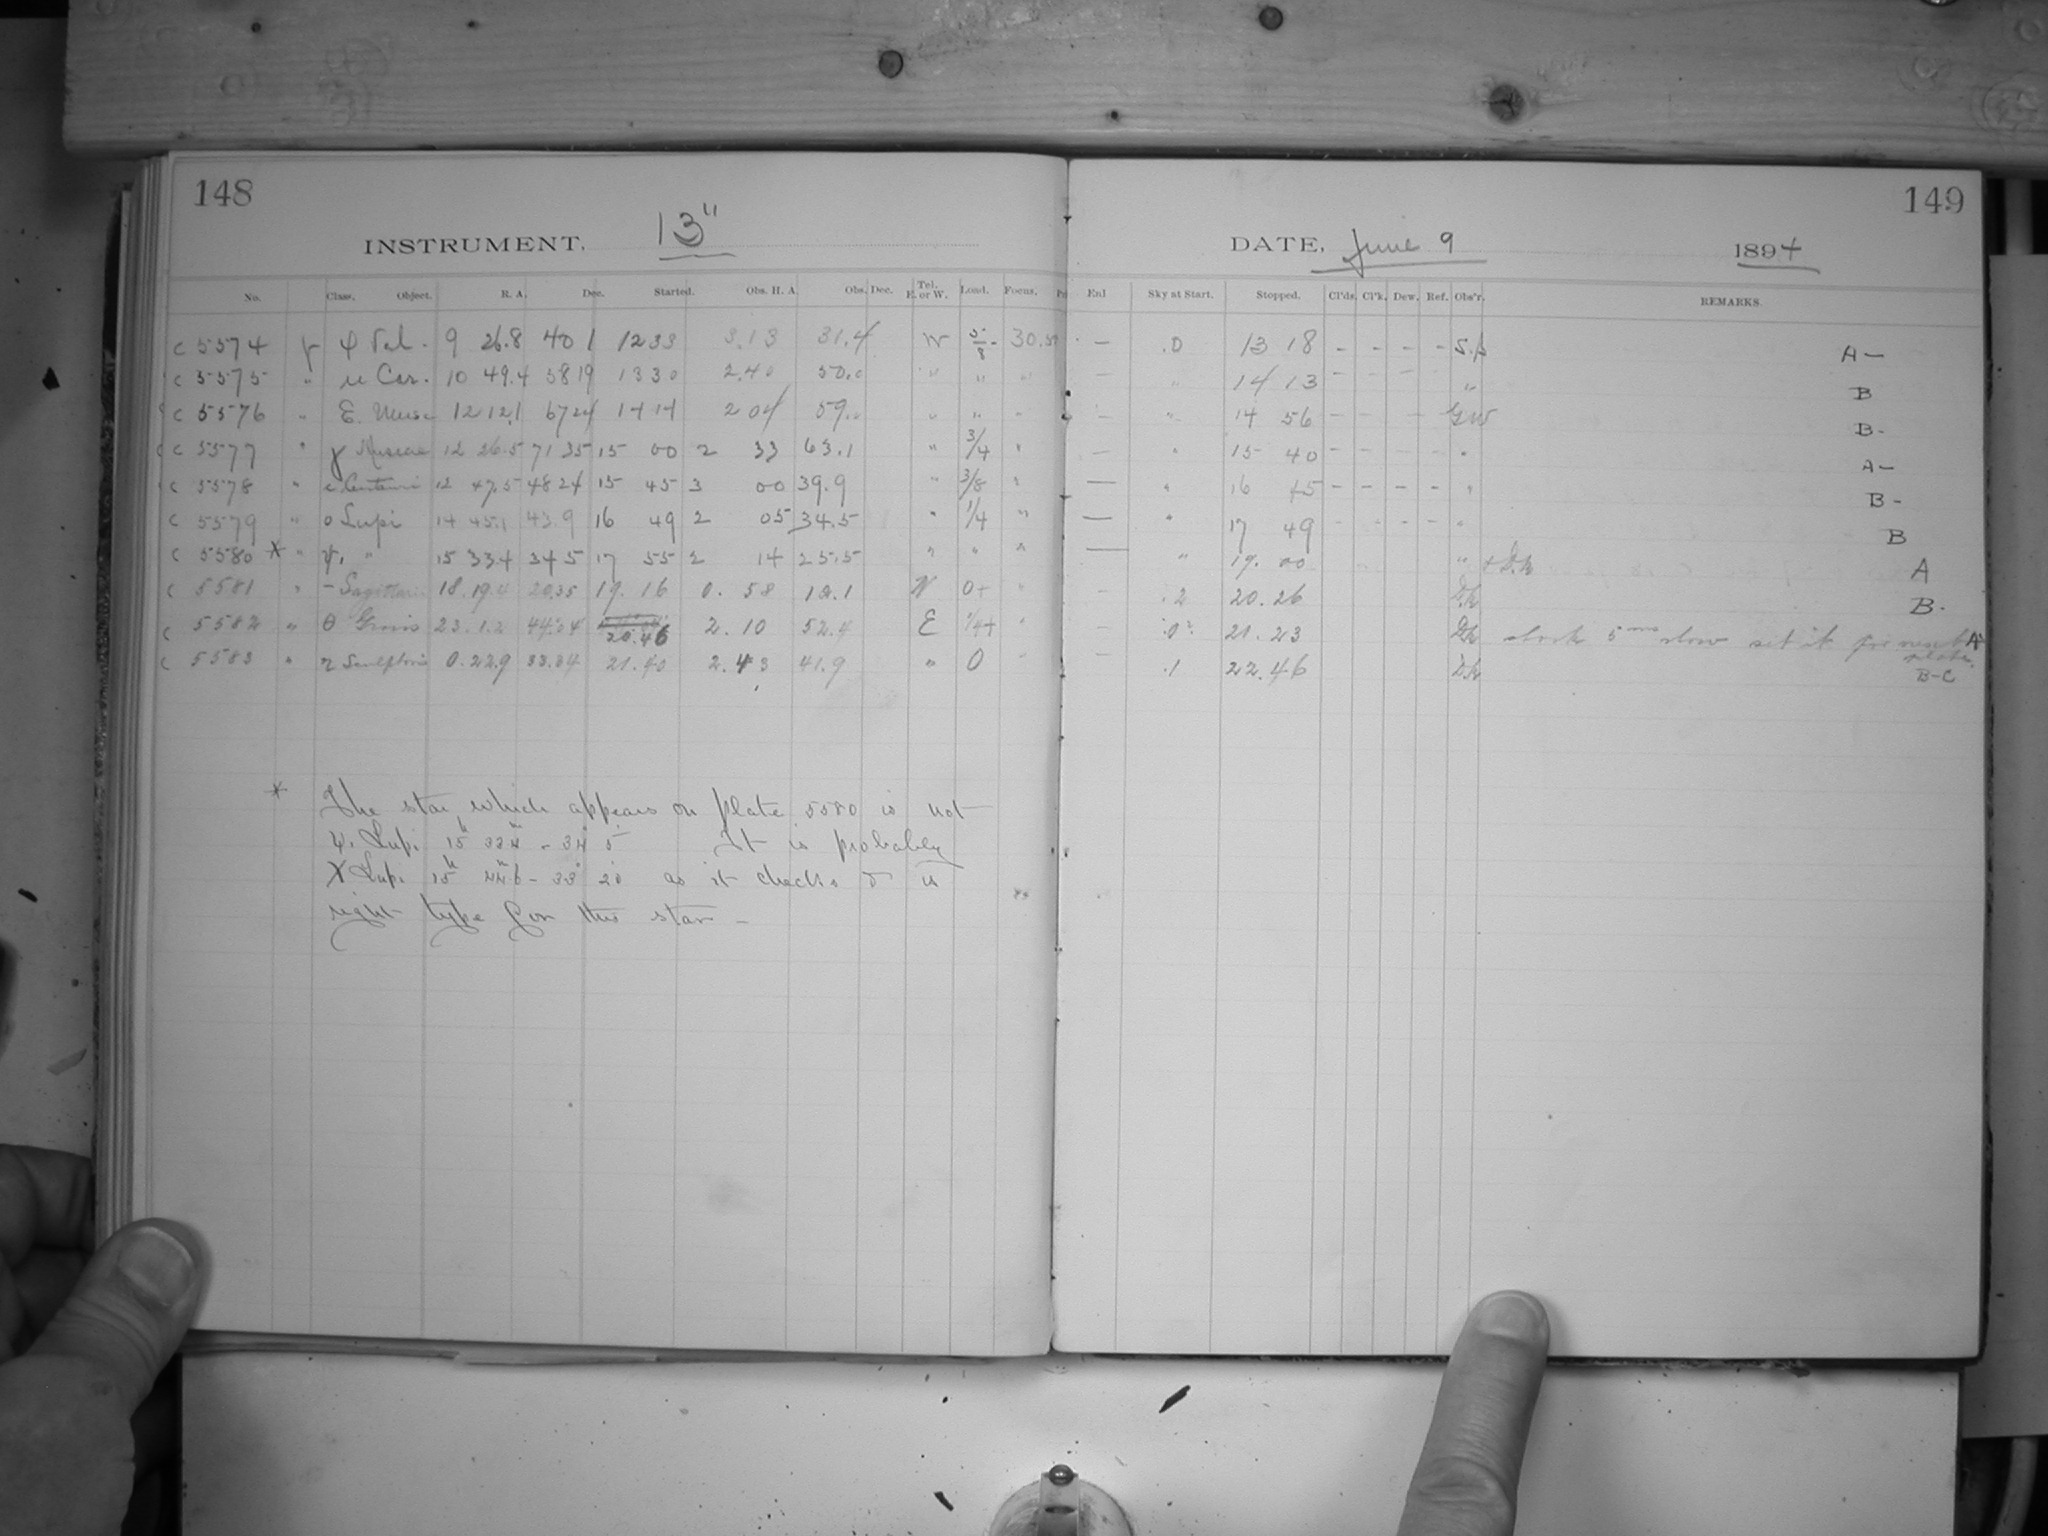 148
INSTRUMENT. 13"
No. Class. Object. R. A. Dec. Started. Obs. H. A. Obs. Dec. Tel. E. or W. Lond. Focus.
c 5574 γ φ Vel. 9 26.8 40 1 12 33 3.13 31.4 W 5/8 - 30.5
c 5575 " u Car. 10 49.4 58 19 13 30 2.40 50.0 " " "
c 5576 " E. Musc 12 12.1 67 24 14 14 2 04 59.0 " " "
c 5577 " γ Muscae 12 26.5 71 35 15 00 2 33 63.1 " 3/4 "
c 5578 " c. Centauri 12 47.5 48 24 15 45 3 00 39.9 " 3/8 "
c 5579 " o Lupi 14 45.1 43.9 16 49 2 05 34.5 " 1/4 "
c 5580 * " ψ. " 15 33.4 34 5 17 55 2 14 25.5 " " "
c 5581 " - Sagittarii 18.19.4 20.35 19. 16 0. 58 12.1 W 0+ "
c 5582 " θ Gruis 23.1.2 44.04 20.46 2. 10 52.4 E 1/4+ "
c 5583 " η Sculptoris 0.22.9 33.34 21.40 2.43 41.9 " 0 "
* The star which appears on plate 5580 is not
ψ. Lup. 15h 33.4m - 34° 5' It is probably
χ Lup. 15h 44.6m - 33° 20' as it checks & is
right type for this star -
149
DATE, June 9 1894
Enl Sky at Start. Stopped. Cl'ds. Cl'k. Dew. Ref. Obs'r. REMARKS.
- .0 13 18 - - - - S.p A -
- " 14 13 - - - - " B
- " 14 56 - - - GW B -
- " 15 40 - - - - " A -
- " 16 45 - - - - " B -
- " 17 49 - - - - " B
- " 19. 00 " + D.k A
- .2 20.26 D.k B -
- .0 21.23 D.k clock 5 ms slow set it for next plate. A
- .1 22.46 D.k B-C